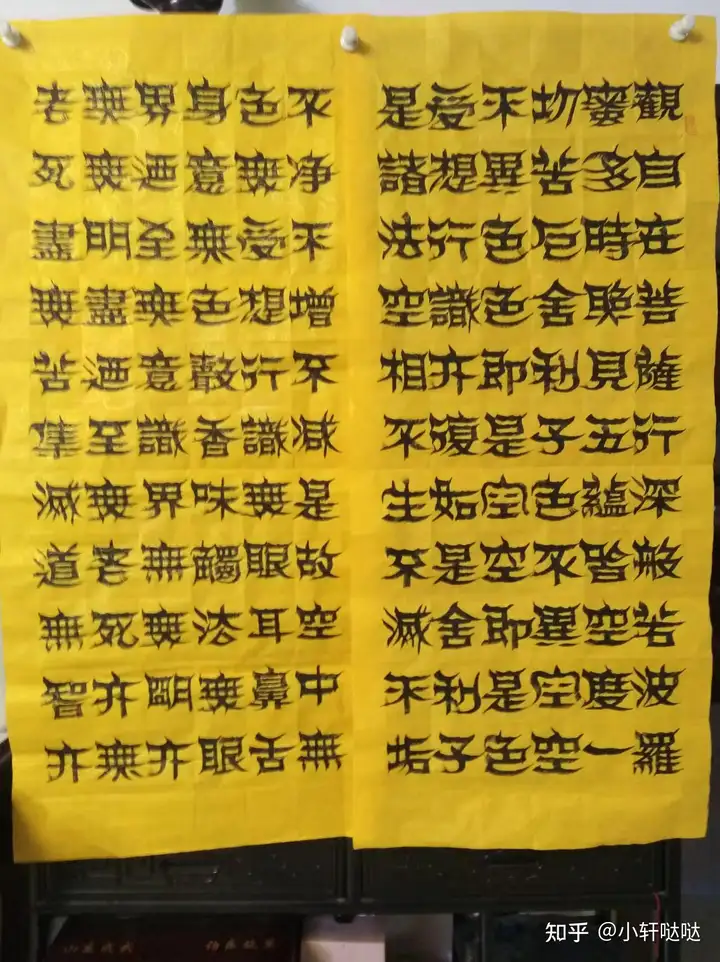 觀自在菩薩行深般若波羅
蜜多時見五蘊皆空度一
切苦厄舍利子色不異空空
不異色色即是空空即是色
受想行識亦復如是舍利子
是諸法空相不生不滅不垢
不净不增不减是故空中無
色無受想行識無眼耳鼻舌
身意無色聲香味觸法無眼
界迺至無意識界無無明亦
無無明盡迺至無老死亦無
老死盡無苦集滅道無智亦
知乎 @小轩哒哒